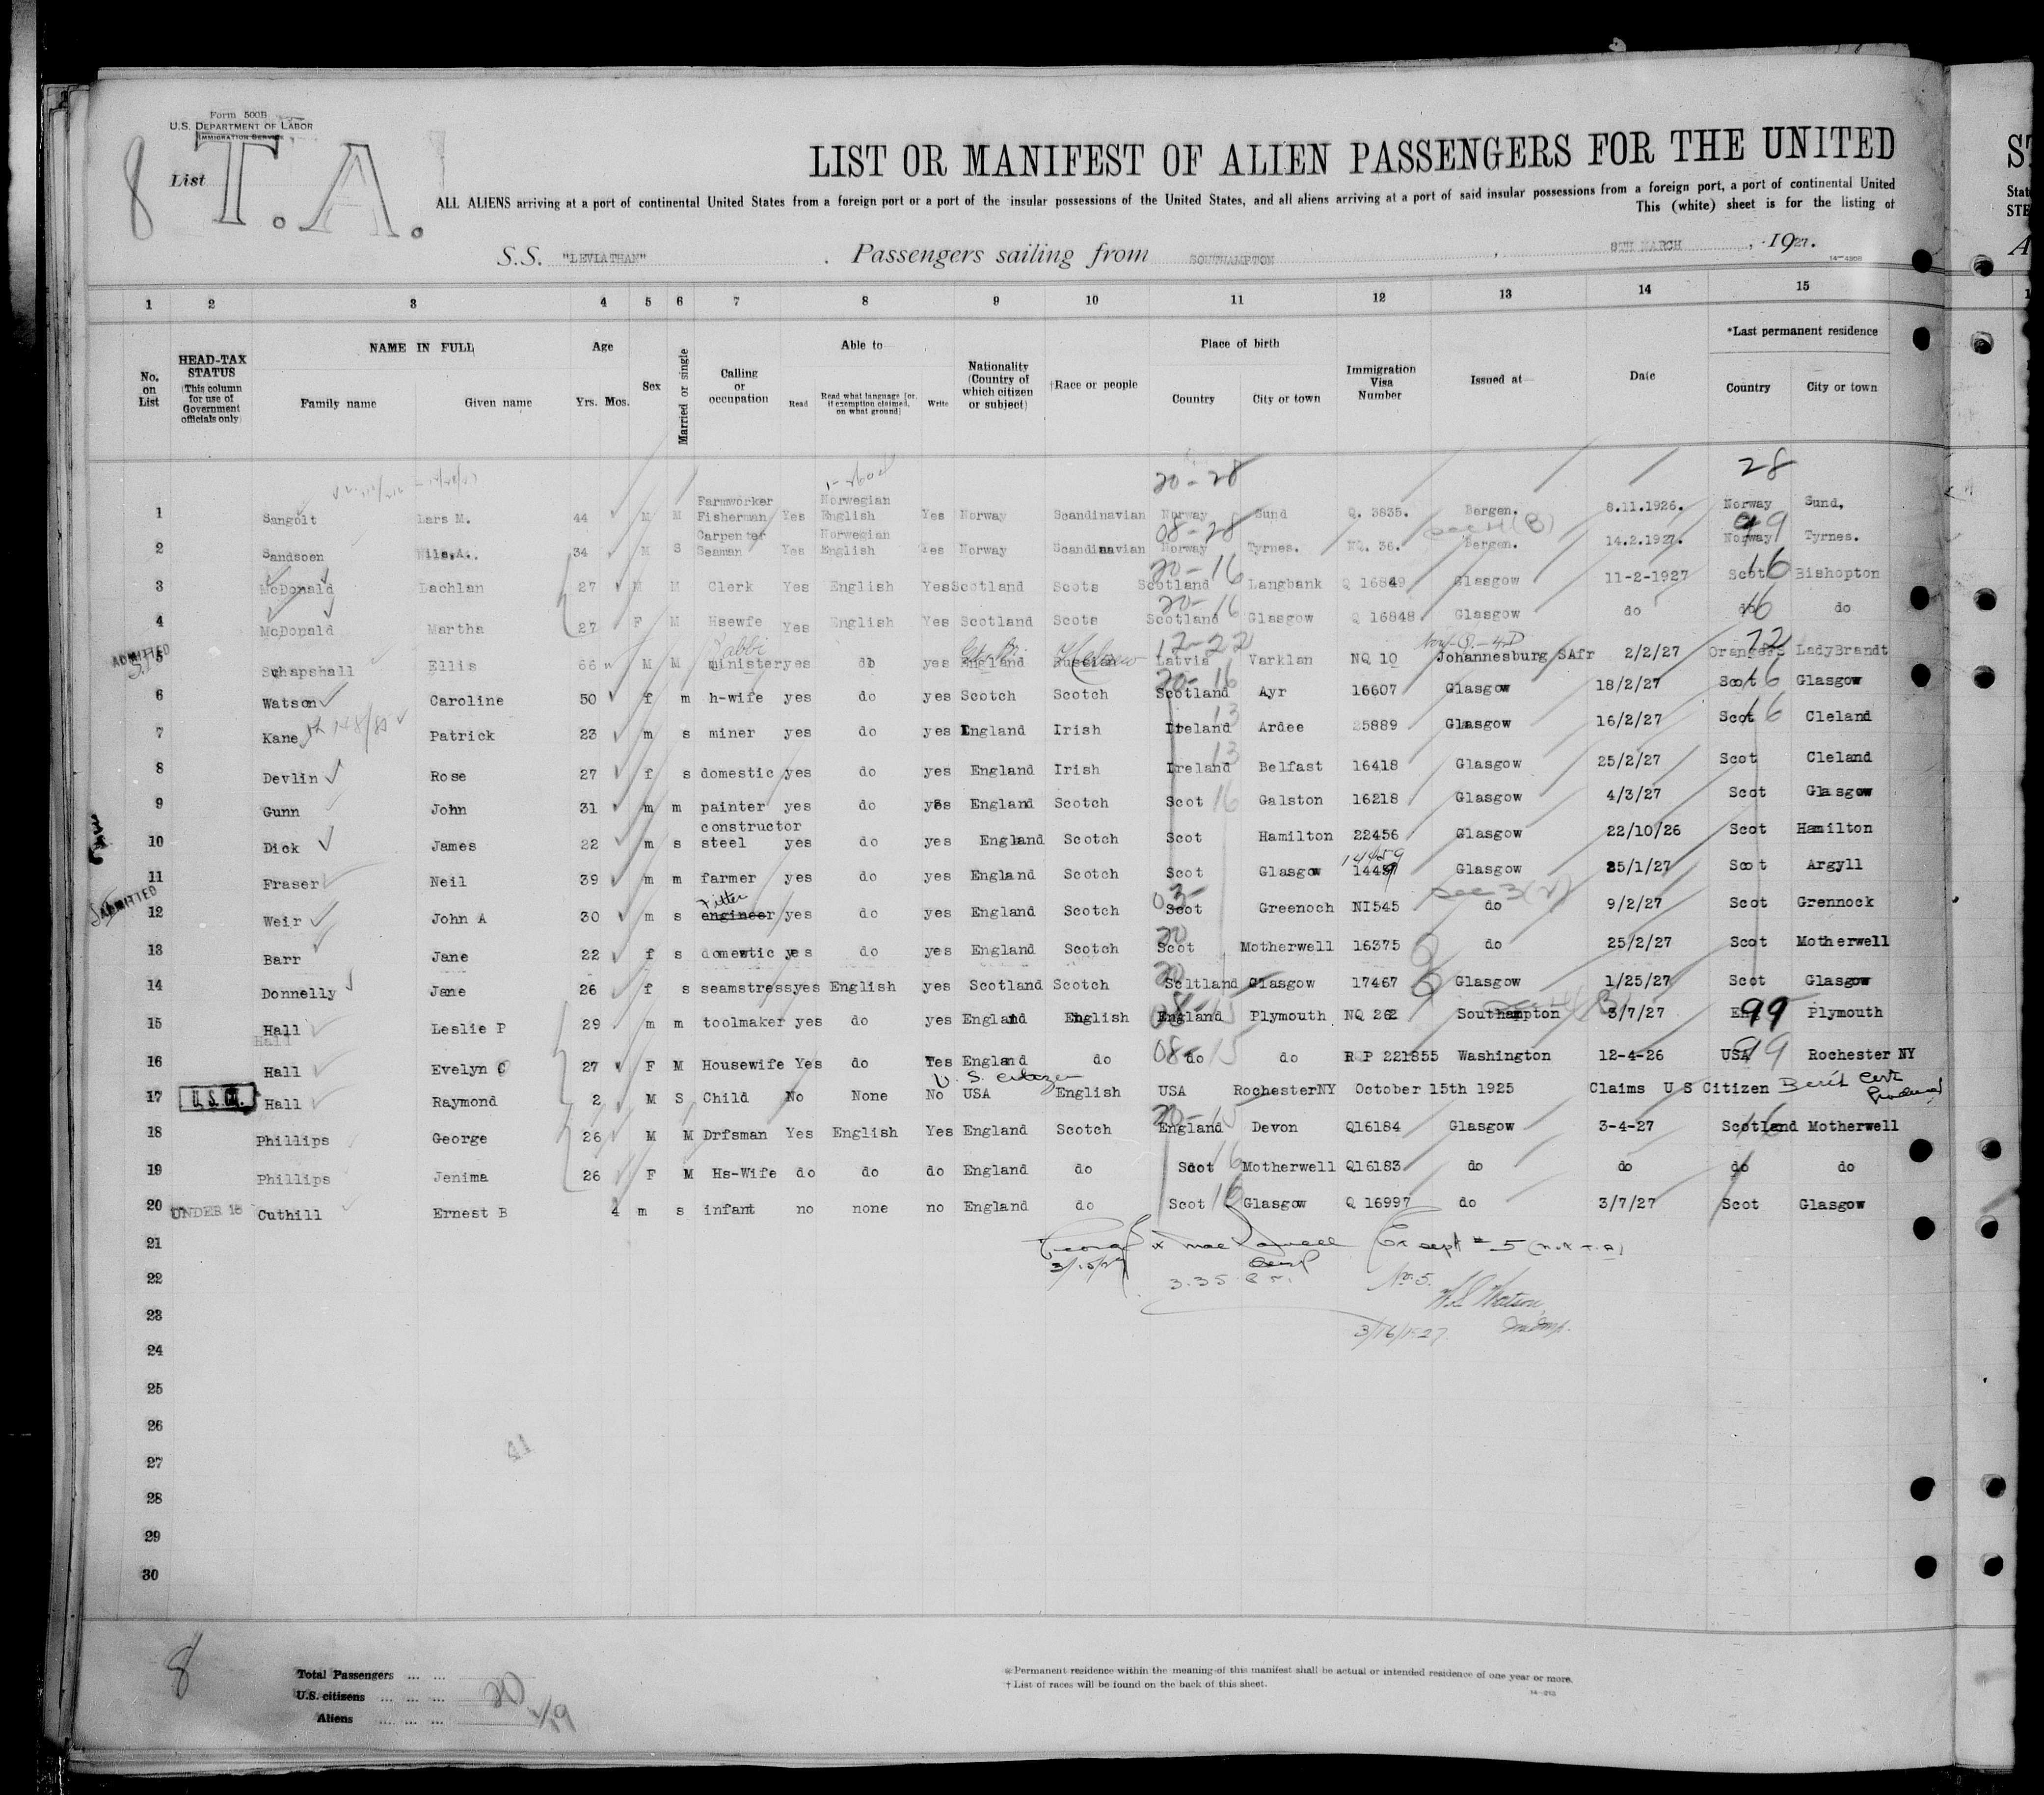 Form 500B
U.S. DEPARTMENT OF LABOR
IMMIGRATION SERVICE
8 List T.A.
LIST OR MANIFEST OF ALIEN PASSENGERS FOR THE UNITED
ALL ALIENS arriving at a port of continental United States from a foreign port or a port of the insular possessions of the United States, and all aliens arriving at a port of said insular possessions from a foreign port, a port of continental United
This (white) sheet is for the listing of
S.S. "LEVIATHAN" Passengers sailing from SOUTHAMPTON, 8TH MARCH, 1927.
1 2 3 4 5 6 7 8 9 10 11 12 13 14 15
No. on List
HEAD-TAX STATUS (This column for use of Government officials only)
NAME IN FULL Family name Given name
Age Yrs. Mos.
Sex
Married or single
Calling or occupation
Able to Read Read what language [or, if exemption claimed, on what ground] Write
Nationality (Country of which citizen or subject)
†Race or people
Place of birth Country City or town
Immigration Visa Number
Issued at
Date
*Last permanent residence Country City or town
20-28 28
1 Sangolt Lars M. 44 M M Farmworker Fisherman Yes Norwegian English Yes Norway Scandinavian Norway Sund Q. 3835. Bergen. 8.11.1926. Norway Sund,
08-28 Sec 4 (B) 99
2 Sandsoen Nils.A.. 34 M S Carpenter Seaman Yes Norwegian English Yes Norway Scandinavian Norway Tyrnes. NQ. 36. Bergen. 14.2.1927. Norway Tyrnes.
20-16 16
3 McDonald Lachlan 27 M M Clerk Yes English Yes Scotland Scots Scotland Langbank Q 16849 Glasgow 11-2-1927 Scot Bishopton
20-16 16
4 McDonald Martha 27 F M Hsewfe Yes English Yes Scotland Scots Scotland Glasgow Q 16848 Glasgow do do do
ADMITTED Rabbi Hebrew 12-22 Non-Q.-4.D 72
5 Schapshall Ellis 66 M M minister yes do yes England Russian Latvia Varklan NQ 10 Johannesburg SAfr 2/2/27 LadyBrandt
20-16 16
6 Watson Caroline 50 f m h-wife yes do yes Scotch Scotch Scotland Ayr 16607 Glasgow 18/2/27 Scot Glasgow
13 16
7 Kane Patrick 23 m s miner yes do yes England Irish Ireland Ardee 25889 Glasgow 16/2/27 Scot Cleland
13
8 Devlin Rose 27 f s domestic yes do yes England Irish Ireland Belfast 16418 Glasgow 25/2/27 Scot Cleland
9 Gunn John 31 m m painter yes do yes England Scotch Scot 16 Galston 16218 Glasgow 4/3/27 Scot Glasgow
10 Dick James 22 m s constructor steel yes do yes England Scotch Scot Hamilton 22456 Glasgow 22/10/26 Scot Hamilton
14459
11 Fraser Neil 39 m m farmer yes do yes England Scotch Scot Glasgow 14459 Glasgow 25/1/27 Scot Argyll
ADMITTED Fitter 03- Sec 3 (2)
12 Weir John A 30 m s engineer yes do yes England Scotch Scot Greenoch NI545 do 9/2/27 Scot Grennock
20
13 Barr Jane 22 f s domestic yes do yes England Scotch Scot Motherwell 16375 do 25/2/27 Scot Motherwell
20
14 Donnelly Jane 26 f s seamstress yes English yes Scotland Scotch Scltland Glasgow 17467 Glasgow 1/25/27 Scot Glasgow
08-15 Sec 4 (B) 99
15 Hall Leslie P 29 m m toolmaker yes do yes England English England Plymouth NQ 262 Southampton 3/7/27 Eng Plymouth
Hall
08-15 99
16 Hall Evelyn C 27 F M Housewife Yes do Yes England do do do R P 221855 Washington 12-4-26 USA Rochester NY
U. S. Citizen
17 U.S.C. Hall Raymond 2 M S Child No None No USA English USA RochesterNY October 15th 1925 Claims U S Citizen Birth Cert Produced
20-15 16
18 Phillips George 26 M M Drfsman Yes English Yes England Scotch England Devon Q16184 Glasgow 3-4-27 Scotland Motherwell
19 Phillips Jenima 26 F M Hs-Wife do do do England do Scot 16 Motherwell Q16183 do do do do
20 UNDER 16 Cuthill Ernest B 4 m s infant no none no England do Scot 16 Glasgow Q 16997 do 3/7/27 Scot Glasgow
21 Except # 5 (not T.A)
3/15/27
22 3.35 No. 5.
23 W.L. Watson
3/16/1927. Insp.
24
25
26
41
27
28
29
30
8
Total Passengers ... ...
U.S. citizens ... ... ... 20
Aliens ... ... ... 1/19
* Permanent residence within the meaning of this manifest shall be actual or intended residence of one year or more.
† List of races will be found on the back of this sheet.
ST
Stat
STE
A